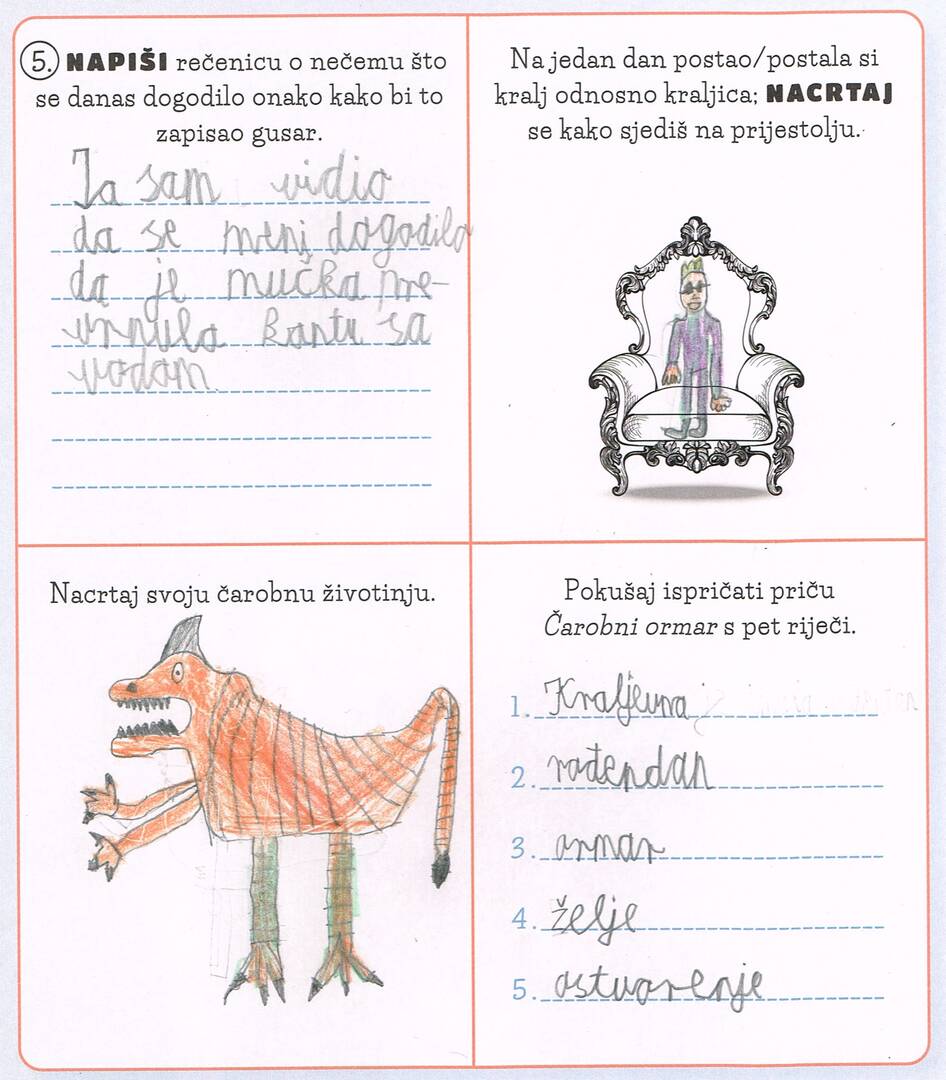 5. NAPIŠI rečenicu o nečemu što
se danas dogodilo onako kako bi to
zapisao gusar.
Ja sam vidio
da se meni dogodilo
da je mučka pre-
vrnula kantu sa
vodom.
Na jedan dan postao/postala si
kralj odnosno kraljica; NACRTAJ
se kako sjediš na prijestolju.
Nacrtaj svoju čarobnu životinju.
Pokušaj ispričati priču
Čarobni ormar s pet riječi.
1. Kraljevna
2. rođendan
3. ormar
4. želje
5. ostvorenje